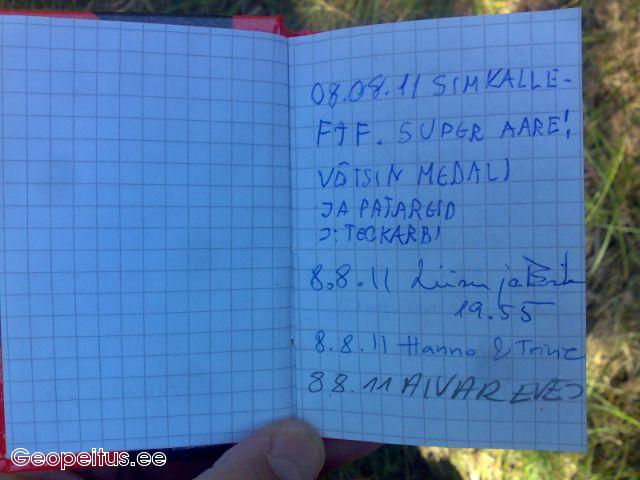 08.08.11 SIMKALLE-
FTF. SUPER AARE!
VÕTSIN MEDALI
JA PATAREID
J: TECKARBI
8.8.11 Liisu ja
19.55
8.8.11 Hanno & Trine
8 8.11 AIVAR EVE
Geopeitus.ee